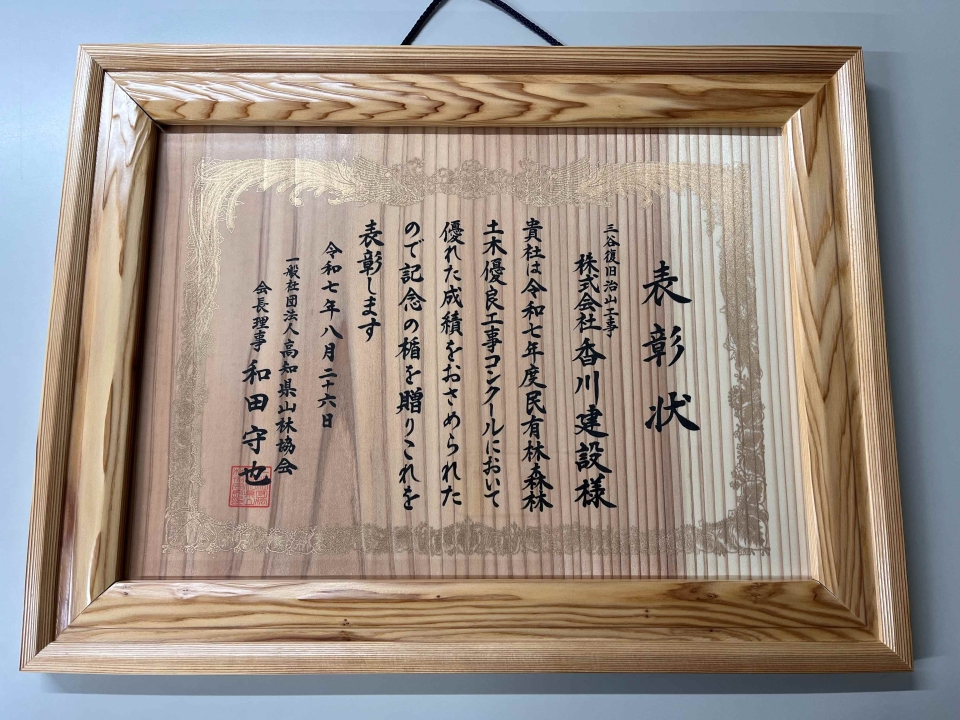 表彰状
三谷復旧治山工事
株式会社香川建設様
貴社は令和七年度民有林森林
土木優良工事コンクールにおいて
優れた成績をおさめられた
ので記念の楯を贈りこれを
表彰します
令和七年八月二十六日
一般社団法人高知県山林協会
会長理事 和田守也